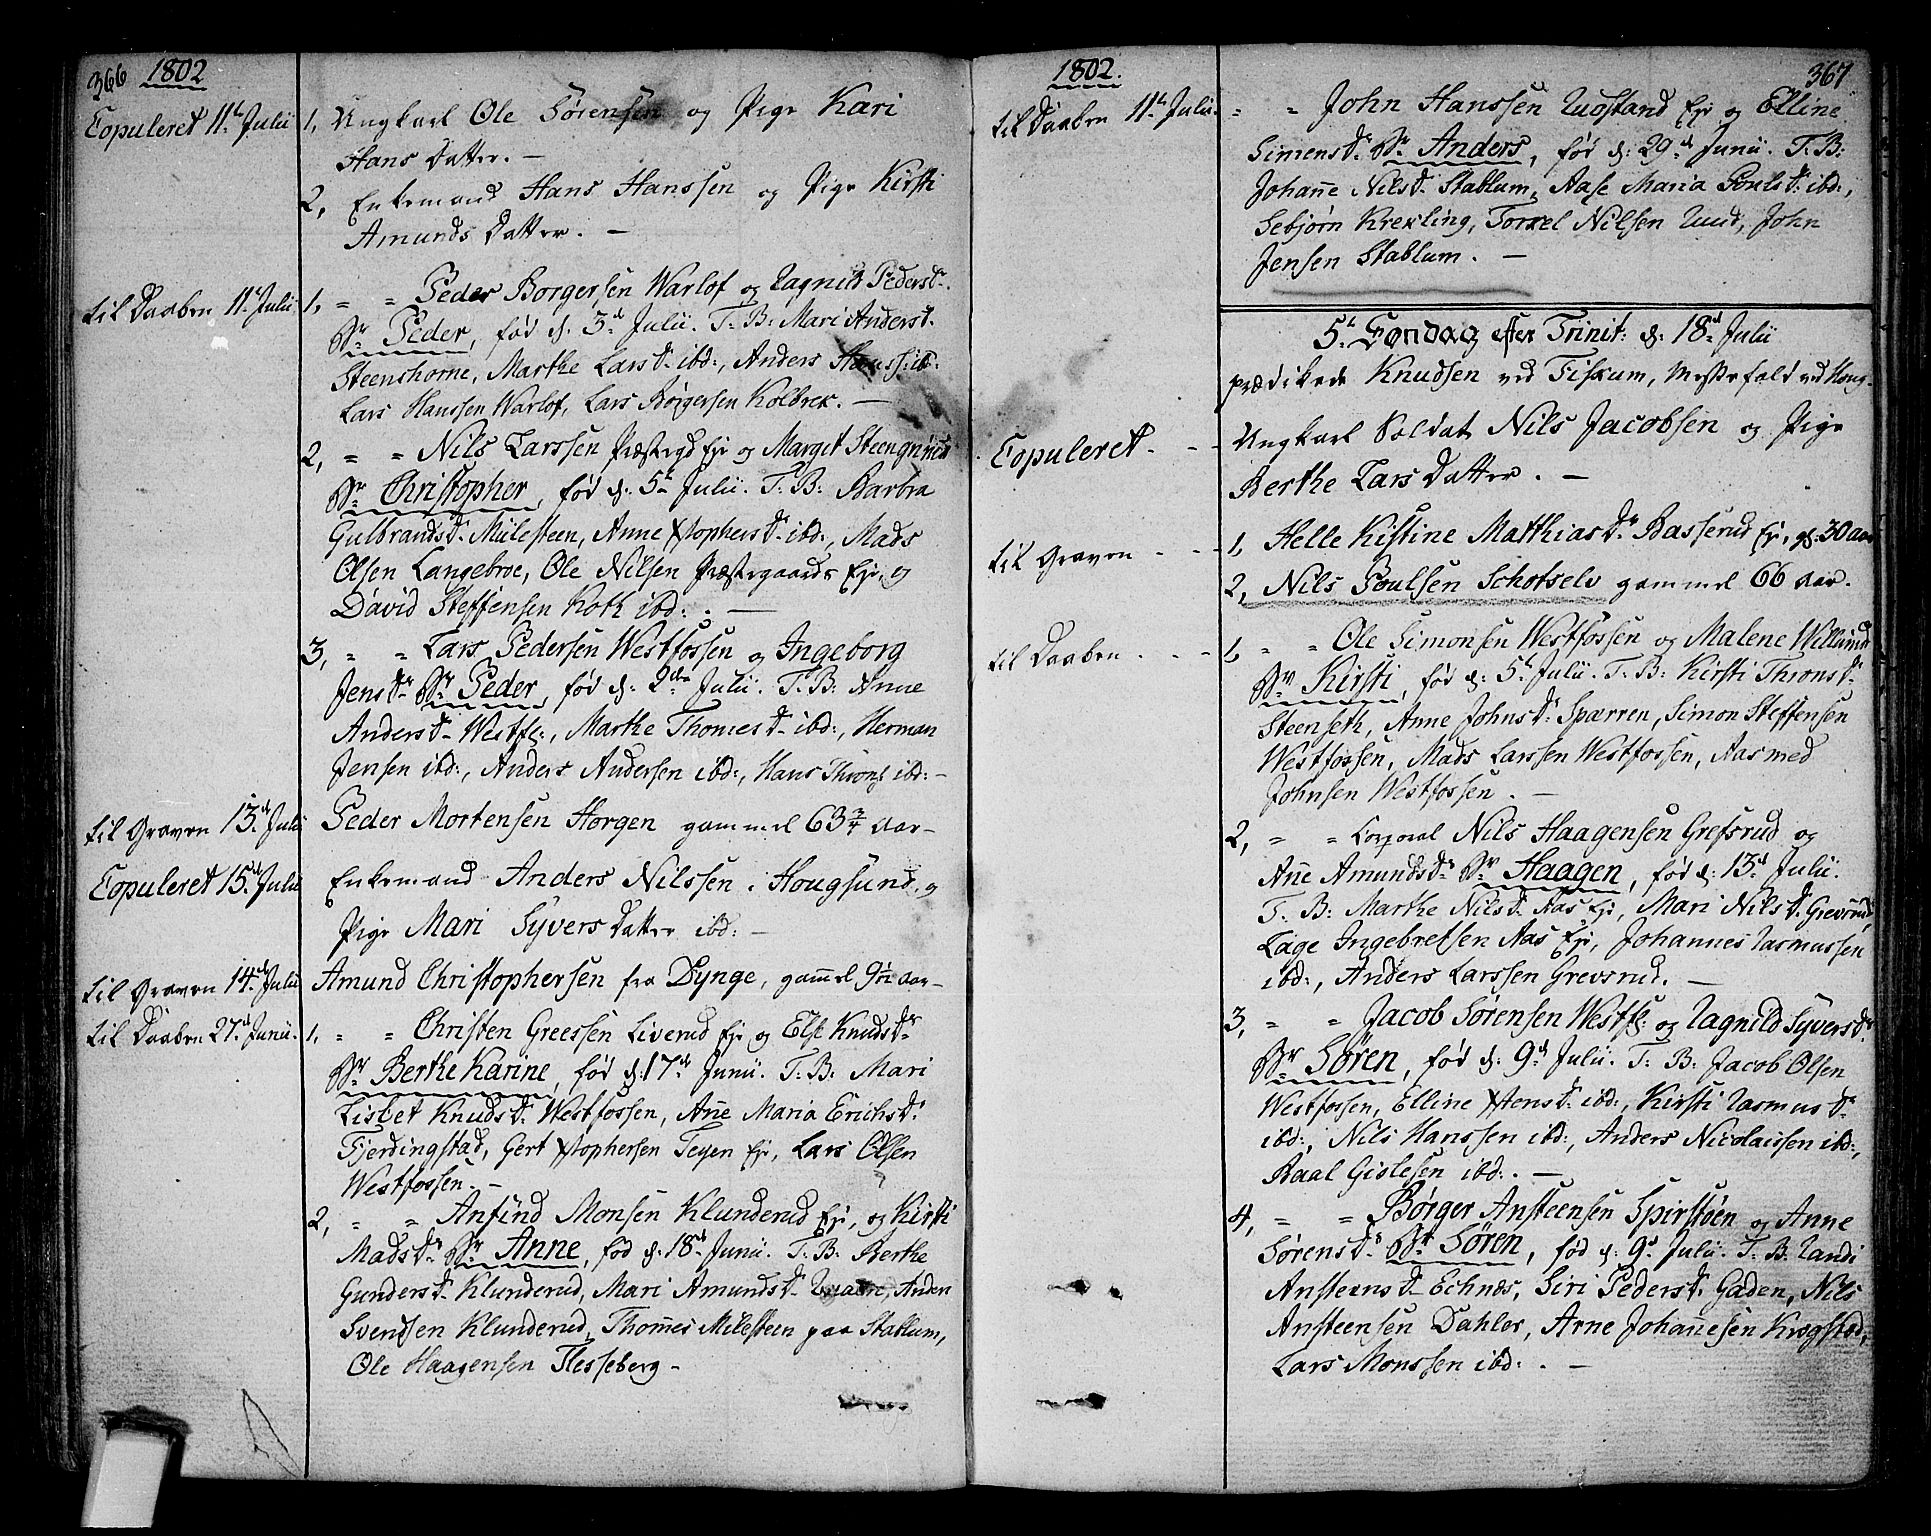 366 1802
Copuleret 11te Julii 1, Ungkarl Ole Sörensen og Pige Kari
Hans Datter. —
2, Enkemand Hans Hanssen og Pige Kirsti
Amunds Datter. —
til Daaben 11te Julii 1, " " Peder Borgersen Warlof og Ragnild Pedersd.
Br Peder, föd d: 3d Julii. T: B: Mari Andersd.
Steenshorne, Marthe Larsd. ibd:, Anders Hanss: ibd:
Lars Hanssen Warlof, Lars Börgersen Kolbrek. —
2, " " Nils Larssen Præstegd Eje og Margit Steengrimsd
Br Christopher, föd d: 5t Julii. T: B: Barbra
Gulbrandsd. Mülesteen, Anne Xstophersd. ibd:, Mads
Olsen Langebroe, Ole Nilsen Præstegaards Eje, og
David Steffensen Koth ibd: . —
3, " " Lars Pedersen Westfossen og Ingeborg
Jensdr Br Peder, föd d: 2den Julii. T: B: Anne
Andersd. Westfs:, Marthe Thomesd. ibd:, Herman
Jensen ibd:, Anders Andersen ibd:, Hans Throns: ibd: —
til Graven 13d Julii Peder Mortensen Horgen gammel 63 3/4 Aar —
Copuleret 15d Julii Enkemand Anders Nilssen i Hougsund, og
Pige Mari Syvers Datter ibd: —
til Graven 14d Julii Amund Christophersen fra Dynge, gam̄el 90 Aar —
til Daaben 27d Junii. 1, " " Christen Greessen Liverud Eje og Else Knudsdr
Br Berthe Karine, föd d: 17d Junii. T: B: Mari
Lisbet Knudsd. Westfossen, An̄e Maria Erichsd.
Fjerdingstad, Gert Xstophersen Teyen Eje, Lars Olsen
Westfossen. —
2, " " Anfind Monsen Klunderud Eje, og Kirsti
Madsdr Br Anne, föd d: 18d Junii. T: B: Berthe
Gundersd. Klunderud, Mari Amundsd. , Anders
Svendsen Klunderud, Thom̄es Milesteen paa Stablum,
Ole Haagensen Flesseberg —
1802. 367
til Daaben 11te Julii. " " John Hanssen Rudstand Eje og Elline
Simensdr Br Anders, föd d: 29d Junii. T: B:
Johan̄e Nilsd. Stablum, Aase Maria Poulsd. ibd:,
Sebjörn Krekling, Torkel Nilsen Ruud, John
Jensen Stablum. —
5t Söndag efter Trinit: d: 18d Julii
prædikede Knudsen ved Fiskum, Messefald ved Houg.
Copuleret. - - Ungkarl Soldat Nils Jacobsen og Pige
Berthe Lars Datter . —
til Graven - - - 1, Helle Kistine Matthiasdr Basserud Eje, gl: 30 Aar
2, Nils Poulsen Schotselv gammel 66 Aar.
til Daaben . - - 1, " " Ole Simonsen Westfossen og Malene Wellumsd
Br Kirsti, föd d: 5t Julii. T: B: Kirsti Thronsd.
Steenseth, Anne Johnsd. Sparren, Simon Steffensen
Westfossen, Mads Larssen Westfossen, Aasmed
Johnsen Westfossen . —
2, " " Corporal Nils Haagensen Grefsrud og
An̄e Amundsdr Br Haagen, föd d: 13d Julii.
T: B: Marthe Nilsd. Aas Eje, Mari Nilsd. Grevsrud,
Lage Ingebretsen Aas Eje, Johannes Rasmussen
ibd:, Anders Larssen Grevsrud. —
3, " " Jacob Sörensen Westfs: og Ragnild Syversdr
Br Sören, föd d: 9d Julii. T: B: Jacob Olsen
Westfossen, Elline Xstensd. ibd:, Kirsti Rasmusd.
ibd:, Nils Hanssen ibd:, Anders Nicolaissen ibd:,
Paal Gislesen ibd: . —
4, " " Börger Ansteensen Spirstöen og Anne
Sörensdr Br Sören, föd d: 9d Julii. T: B. Randi
Ansteensd. Echnæs, Siri Pedersd. Gaden, Nils
Ansteensen Dahler, Arne Johan̄esen Krogstad,
Lars Monssen ibd: . —